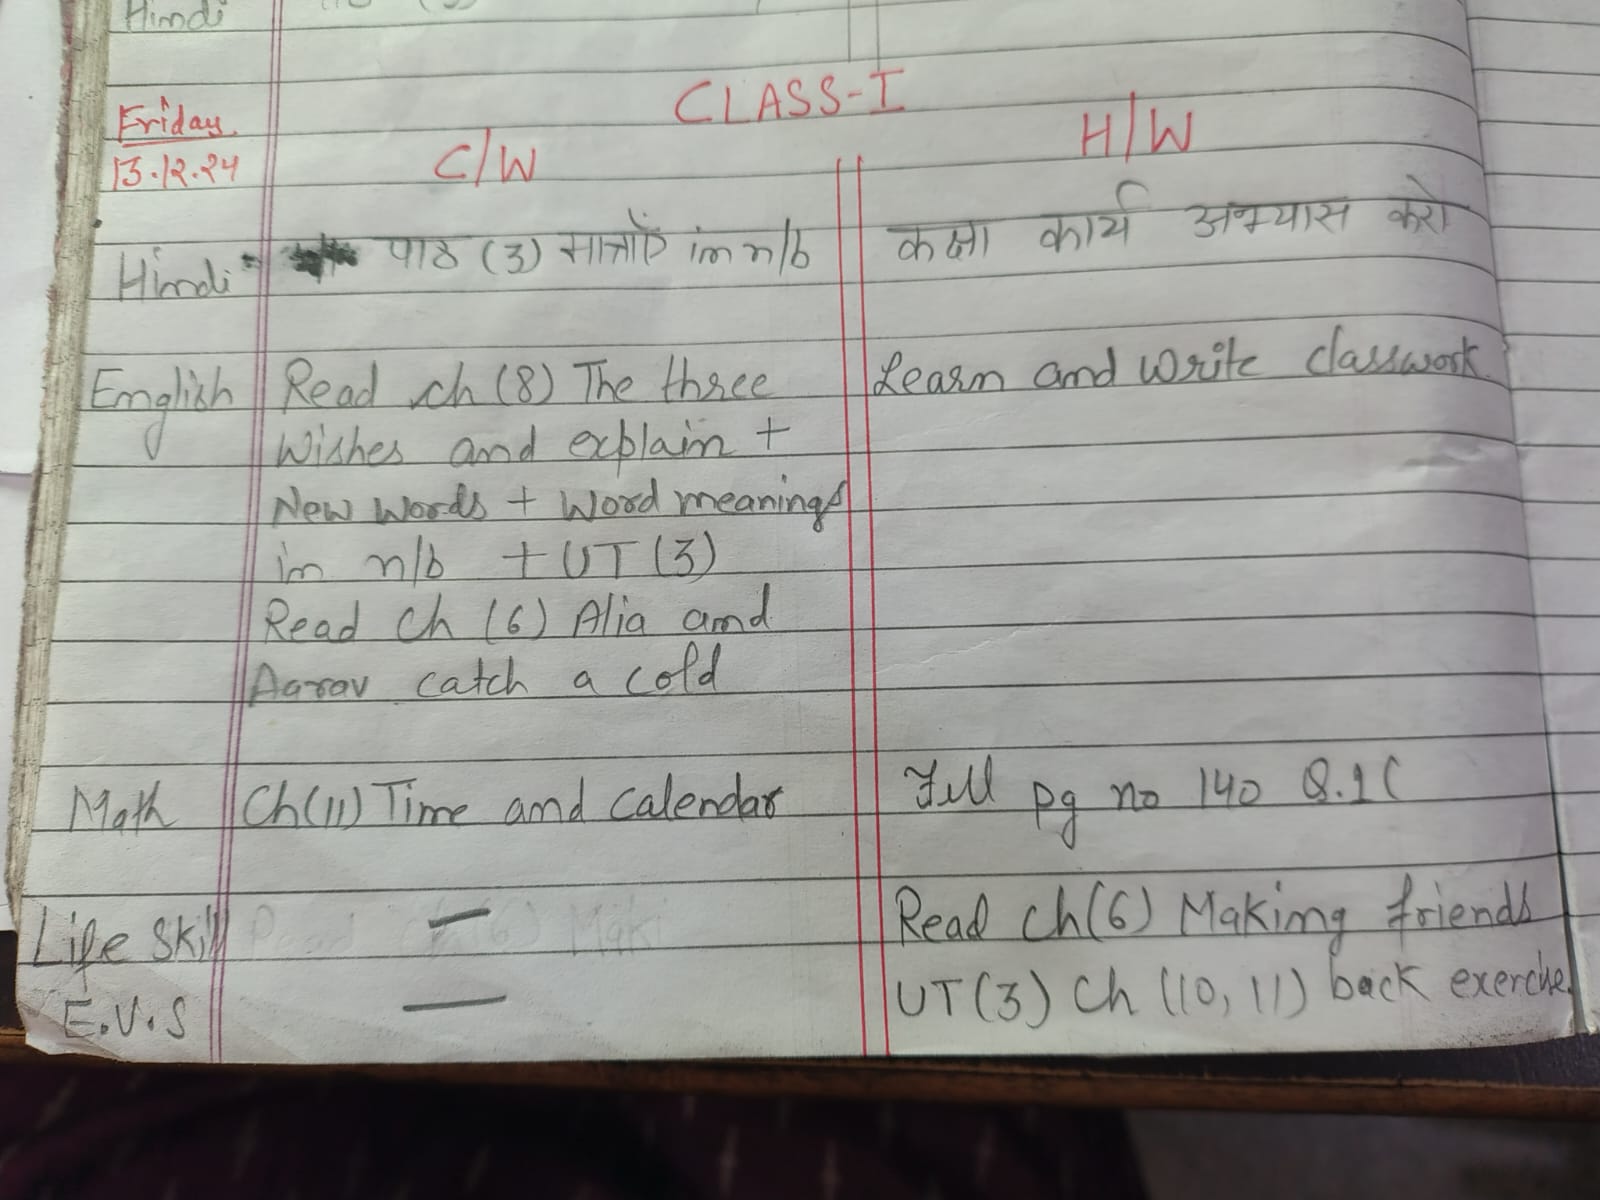 Hindi
CLASS-I
Friday
13.12.24
C/W
H/W
Hindi
पाठ (3) मात्राएँ in n/b
कक्षा कार्य अभ्यास करो
English
Read ch (8) The three
Learn and write classwork
Wishes and explain +
New words + Word meanings
in n/b + UT (3)
Read Ch (6) Alia and
Aarav catch a cold
Math
Ch(11) Time and Calendar
Fill pg no 140 Q.1 (
Life Skill
—
Read Ch(6) Making friends
E.V.S
—
UT(3) Ch (10, 11) back exercise